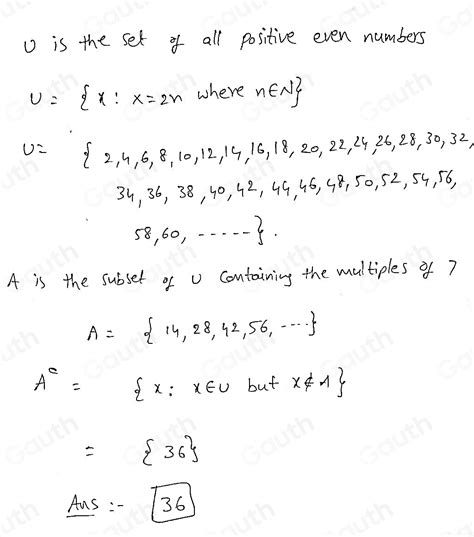 U is the set of all positive even numbers
U = { x : x = 2n where n ∈ N }
U = { 2, 4, 6, 8, 10, 12, 14, 16, 18, 20, 22, 24, 26, 28, 30, 32,
34, 36, 38, 40, 42, 44, 46, 48, 50, 52, 54, 56,
58, 60, ----- } .
A is the subset of U containing the multiples of 7
A = { 14, 28, 42, 56, ---- }
Aᶜ = { x : x ∈ U but x ∉ A }
= { 36 }
Ans :- 36
Gauth